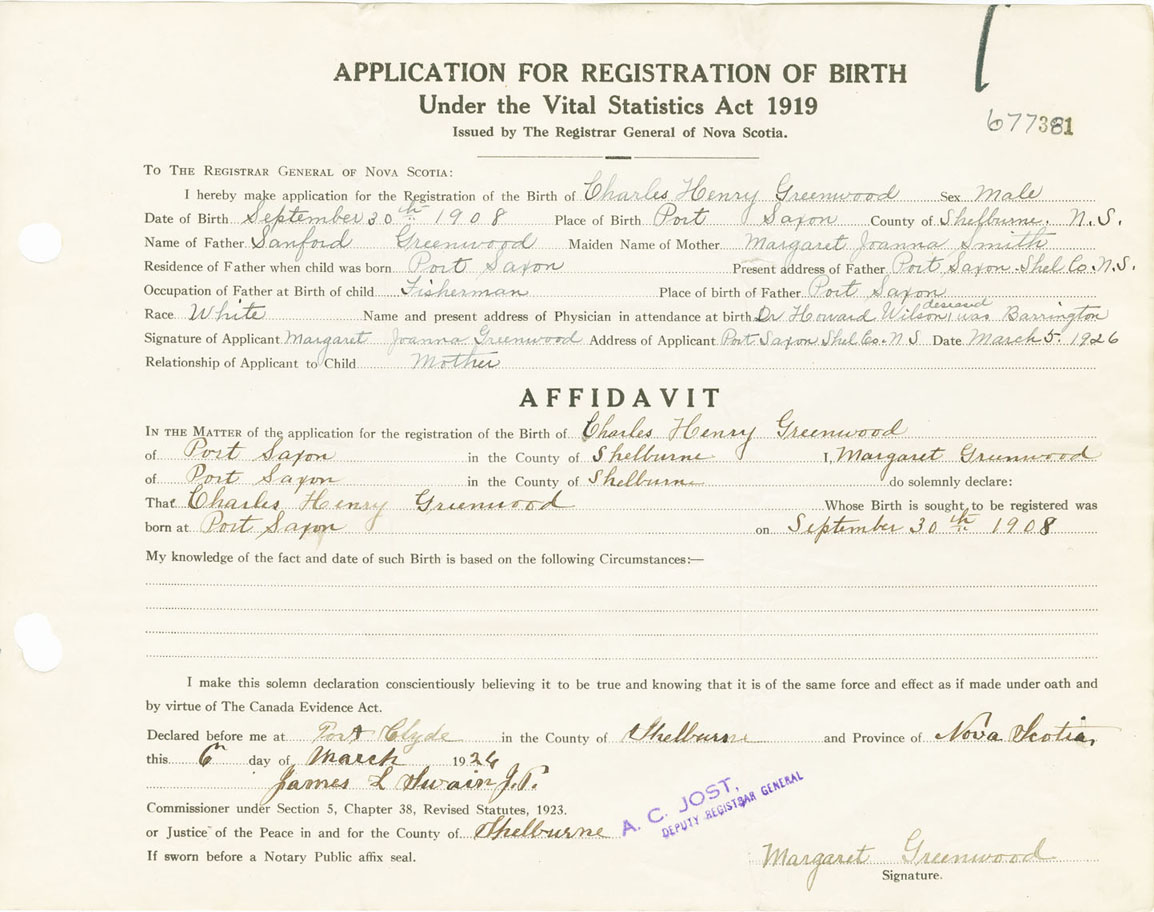 APPLICATION FOR REGISTRATION OF BIRTH
Under the Vital Statistics Act 1919
Issued by The Registrar General of Nova Scotia.
677381
TO THE REGISTRAR GENERAL OF NOVA SCOTIA:
I hereby make application for the Registration of the Birth of Charles Henry Greenwood Sex Male
Date of Birth September 30th 1908 Place of Birth Port Saxon County of Shelburne. N.S.
Name of Father Sanford Greenwood Maiden Name of Mother Margaret Joanna Smith
Residence of Father when child was born Port Saxon Present address of Father Port Saxon Shel Co. N.S.
Occupation of Father at Birth of child Fisherman Place of birth of Father Port Saxon
Race White Name and present address of Physician in attendance at birth Dr Howard Wilson, deseased was Barrington
Signature of Applicant Margaret Joanna Greenwood Address of Applicant Port Saxon Shel Co. N S Date March 5. 1926
Relationship of Applicant to Child Mother
AFFIDAVIT
IN THE MATTER of the application for the registration of the Birth of Charles Henry Greenwood
of Port Saxon in the County of Shelburne I, Margaret Greenwood
of Port Saxon in the County of Shelburne do solemnly declare:
That Charles Henry Greenwood Whose Birth is sought to be registered was
born at Port Saxon on September 30th 1908
My knowledge of the fact and date of such Birth is based on the following Circumstances:—
I make this solemn declaration conscientiously believing it to be true and knowing that it is of the same force and effect as if made under oath and
by virtue of The Canada Evidence Act.
Declared before me at Port Clyde in the County of Shelburne and Province of Nova Scotia,
this 6th day of March 1926
James L Swain J.P.
Commissioner under Section 5, Chapter 38, Revised Statutes, 1923.
or Justice of the Peace in and for the County of Shelburne
A. C. JOST,
DEPUTY REGISTRAR GENERAL
If sworn before a Notary Public affix seal.
Margaret Greenwood
Signature.